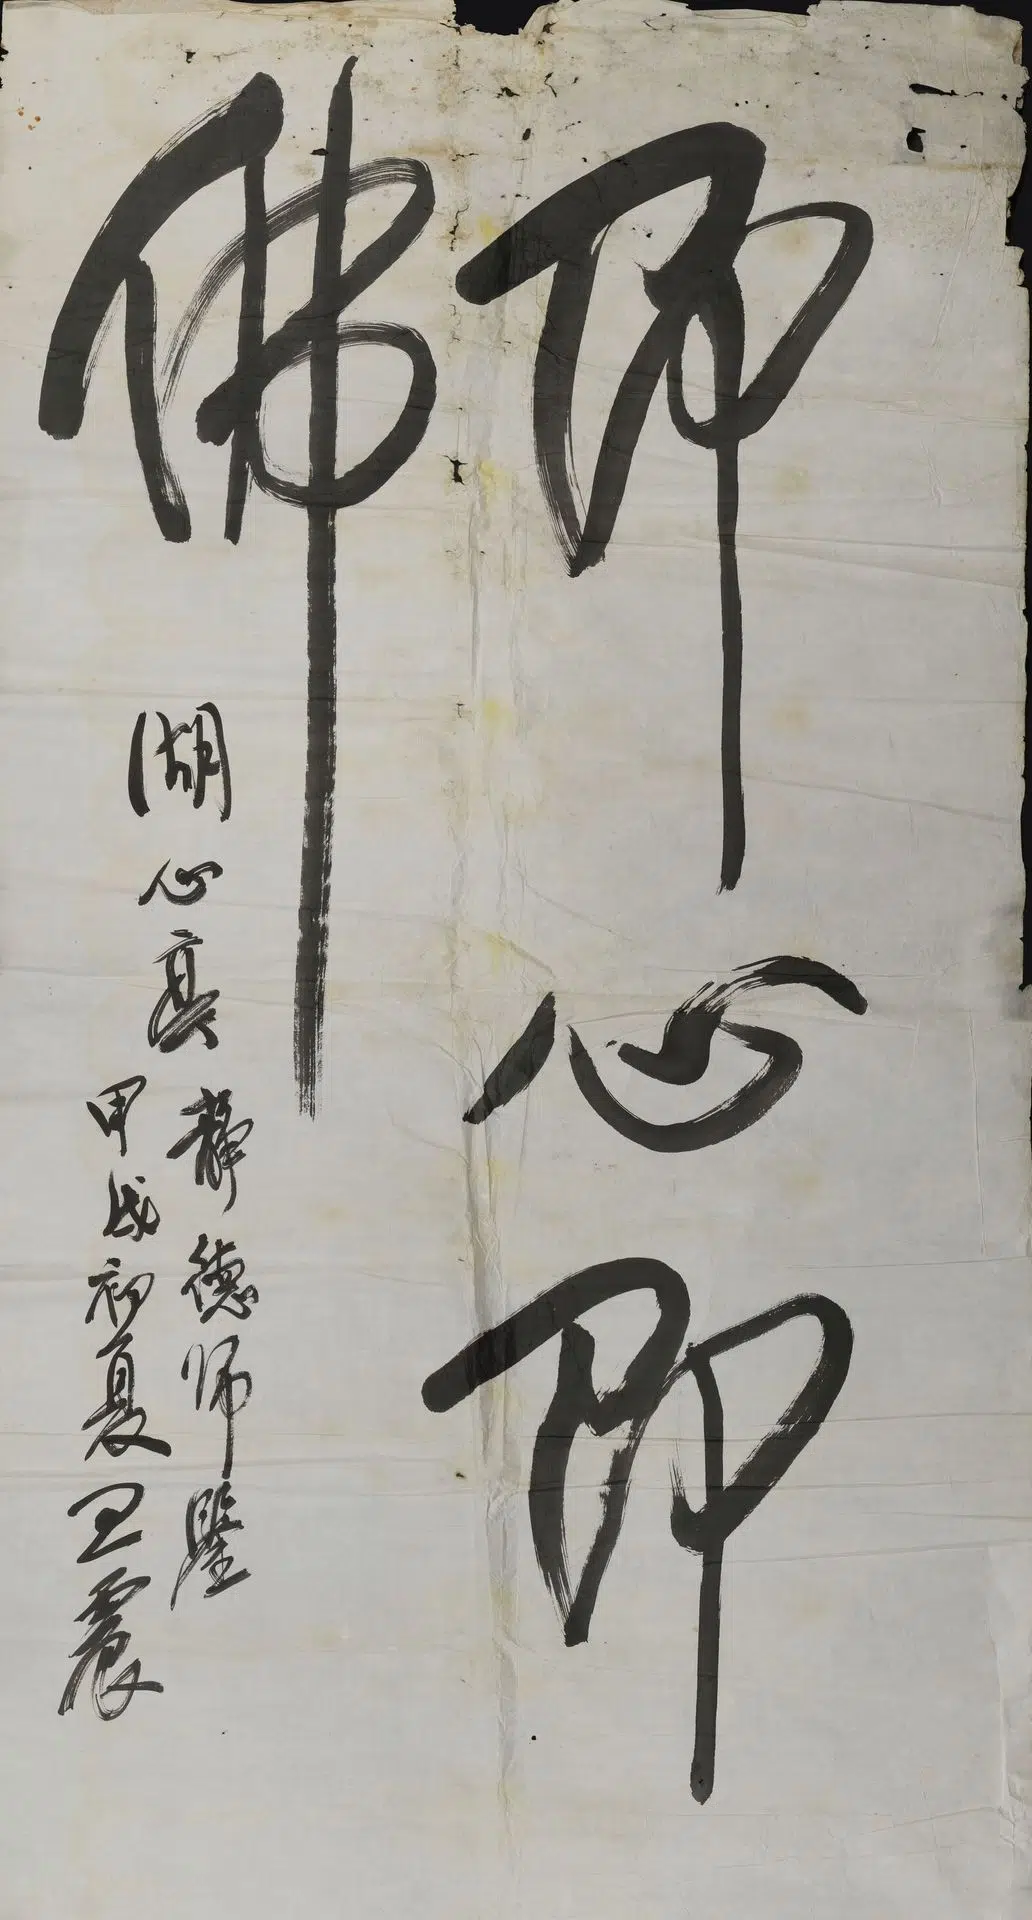 即心即
佛
湖心亭静德师鉴
甲戌初夏王震